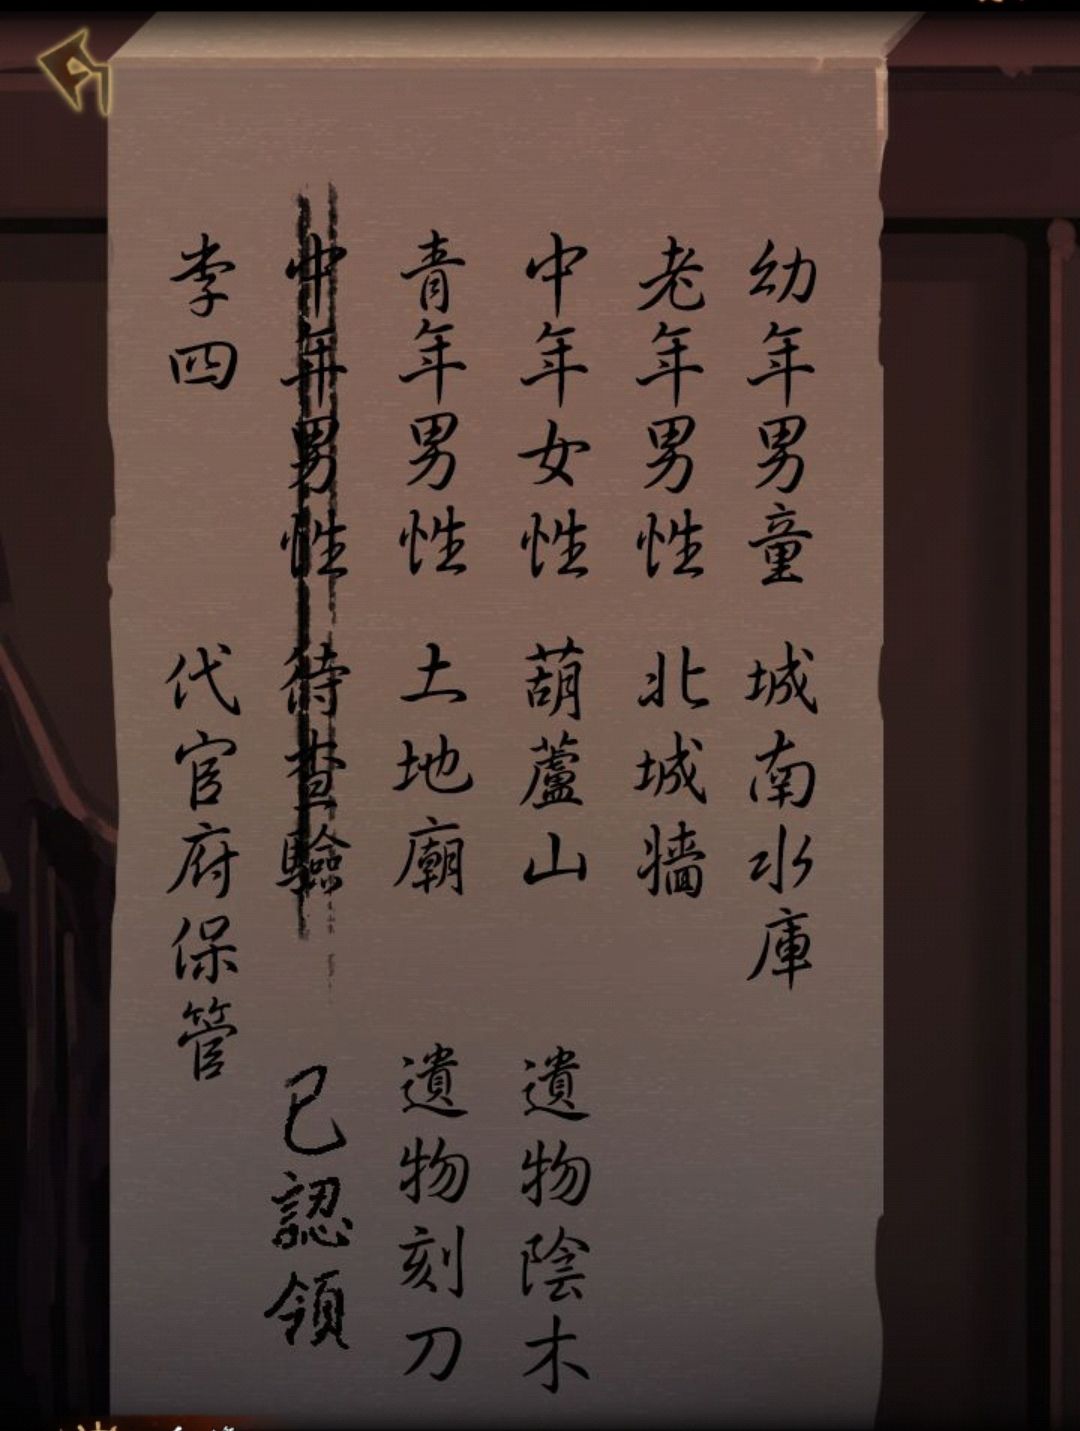 幼年男童 城南水庫
老年男性 北城牆
中年女性 葫蘆山 遺物陰木
青年男性 土地廟 遺物刻刀
中年男性 待查驗 已認領
李四 代官府保管